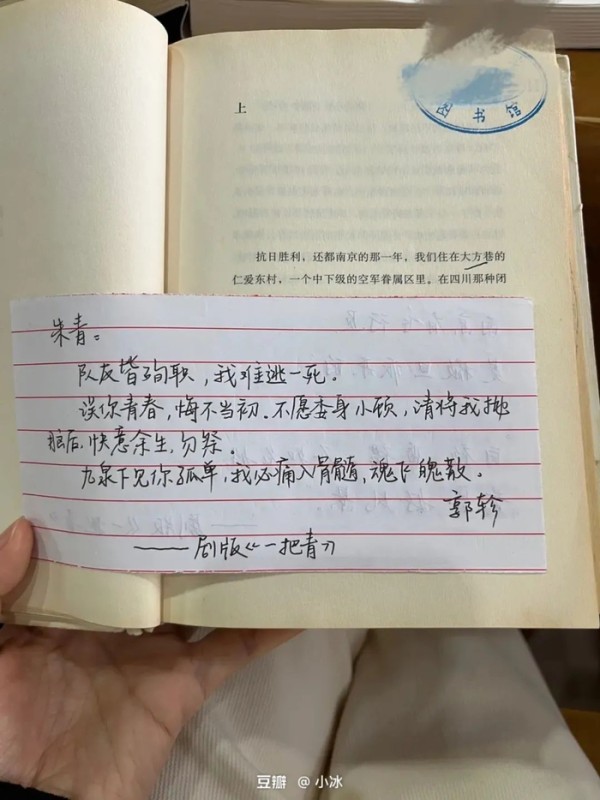 图书馆
上
抗日胜利，还都南京的那一年，我们住在大方巷的
仁爱东村，一个中下级的空军眷属区里。在四川那种闭
朱青：
队友皆殉职，我难逃一死.
误你青春，悔不当初.不愿委身小顾，请将我抛
脑后.快意余生，勿祭.
九泉下见你孤单，我必痛入骨髓，魂飞魄散.
郭轸
——剧版《一把青》
豆瓣 @小冰